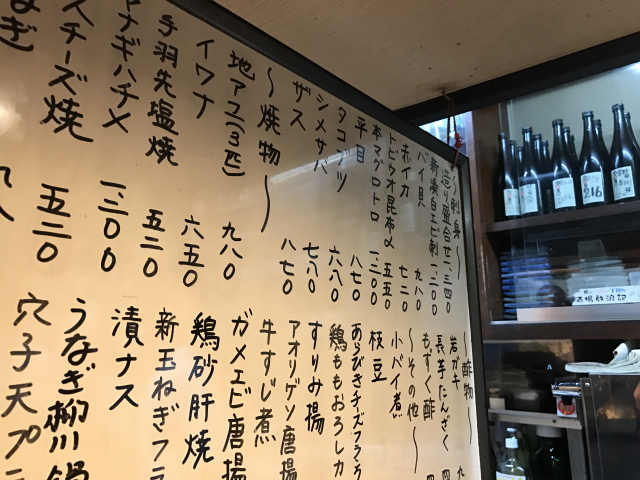 〜刺身〜
造り盛合せ 一三四〇
新湊白エビ刺 一二〇〇
バイ貝 九八〇
赤イカ 七二〇
トビウオ昆布〆 五五〇
本マグロトロ 一二〇〇
平目 八七〇
タコブツ 六八〇
シメサバ 七八〇
ザス 八七〇
〜焼物〜
地アユ(3匹) 九八〇
イワナ 六五〇
手羽先塩焼 五二〇
ヤナギハチメ 一三〇〇
スチーズ焼 五二〇
なぎ
〜酢物〜
岩ガキ 九
長芋たんざく 四
もずく酢 四
〜その他〜
小バイ煮
枝豆
あらびきチーズフランク
鶏ももおろしカ
すりみ揚
アオリゲソ唐揚
牛すじ煮
ガメエビ唐揚
鶏砂肝焼
新玉ねぎフラ
漬ナス
うなぎ柳川鍋
穴子天プラ
216
酒場放浪記